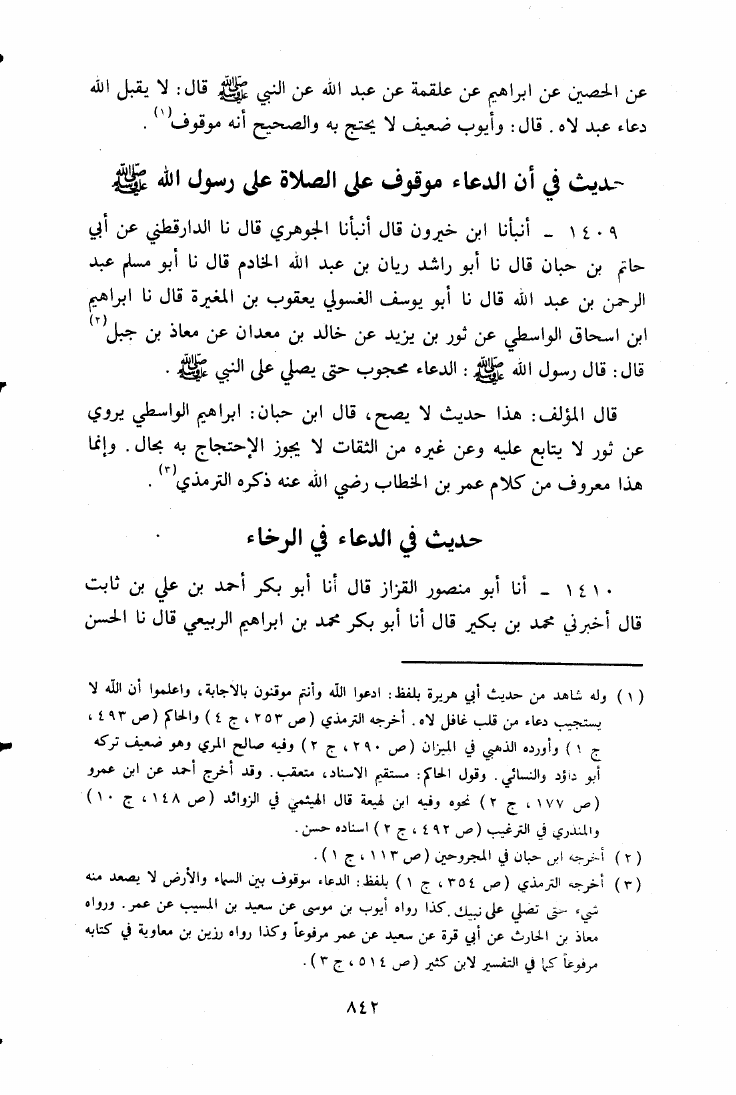 عن الحصين عن ابراهيم عن علقمة عن عبد الله عن النبي ﷺ قال: لا يقبل الله
دعاء عبد لاه. قال: وأيوب ضعيف لا يحتج به والصحيح أنه موقوف(١).
حديث في أن الدعاء موقوف على الصلاة على رسول الله ﷺ
١٤٠٩ - أنبأنا ابن خيرون قال أنبأنا الجوهري قال نا الدارقطني عن أبي
حاتم بن حبان قال نا أبو راشد ريان بن عبد الله الخادم قال نا أبو مسلم عبد
الرحمن بن عبد الله قال نا أبو يوسف الغسولي يعقوب بن المغيرة قال نا ابراهيم
ابن اسحاق الواسطي عن ثور بن يزيد عن خالد بن معدان عن معاذ بن جبل(٢)
قال: قال رسول الله ﷺ: الدعاء محجوب حتى يصلي على النبي ﷺ.
قال المؤلف: هذا حديث لا يصح، قال ابن حبان: ابراهيم الواسطي يروي
عن ثور لا يتابع عليه وعن غيره من الثقات لا يجوز الإحتجاج به بحال. وإنما
هذا معروف من كلام عمر بن الخطاب رضي الله عنه ذكره الترمذي(٣).
حديث في الدعاء في الرخاء
١٤١٠ - أنا أبو منصور القزاز قال أنا أبو بكر أحمد بن علي بن ثابت
قال أخبرني محمد بن بكير قال أنا أبو بكر محمد بن ابراهيم الربيعي قال نا الحسن
(١) وله شاهد من حديث أبي هريرة بلفظ: ادعوا الله وأنتم موقنون بالاجابة، واعلموا أن الله لا
يستجيب دعاء من قلب غافل لاه. أخرجه الترمذي (ص ٢٥٣، ج ٤) والحاكم (ص ٤٩٣،
ج ١) وأورده الذهبي في الميزان (ص ٢٩٠، ج ٢) وفيه صالح المري وهو ضعيف تركه
أبو داؤد والنسائي. وقول الحاكم: مستقيم الاسناد، متعقب. وقد أخرج أحمد عن ابن عمرو
(ص ١٧٧، ج ٢) نحوه وفيه ابن لهيعة قال الهيثمي في الزوائد (ص ١٤٨، ج ١٠)
والمنذري في الترغيب (ص ٤٩٢، ج ٢) اسناده حسن.
(٢) أخرجه ابن حبان في المجروحين (ص ١١٣، ج ١).
(٣) أخرجه الترمذي (ص ٣٥٤، ج ١) بلفظ: الدعاء موقوف بين السماء والأرض لا يصعد منه
شيء حتى تصلي على نبيك. كذا رواه أيوب بن موسى عن سعيد بن المسيب عن عمر. ورواه
معاذ بن الحارث عن أبي قرة عن سعيد عن عمر مرفوعاً وكذا رواه رزين بن معاوية في كتابه
مرفوعاً كما في التفسير لابن كثير (ص ٥١٤، ج ٣).
٨٤٢